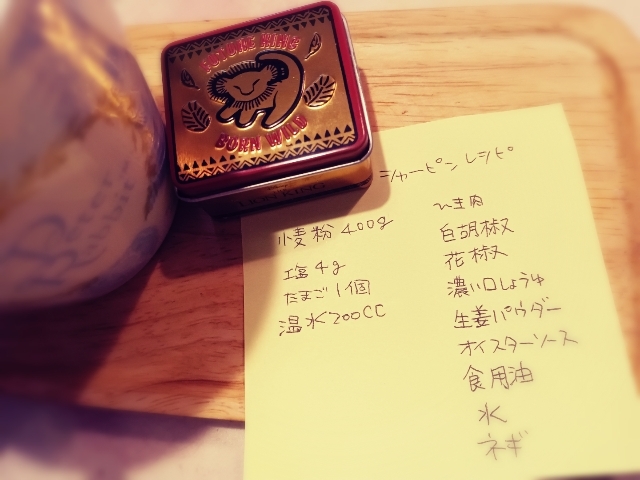 FUTURE KING
BORN WILD
シャーピンレシピ
小麦粉 400g
塩 4g
たまご 1個
温水 200CC
ひき肉
白胡椒
花椒
濃い口しょうゆ
生姜パウダー
オイスターソース
食用油
水
ネギ